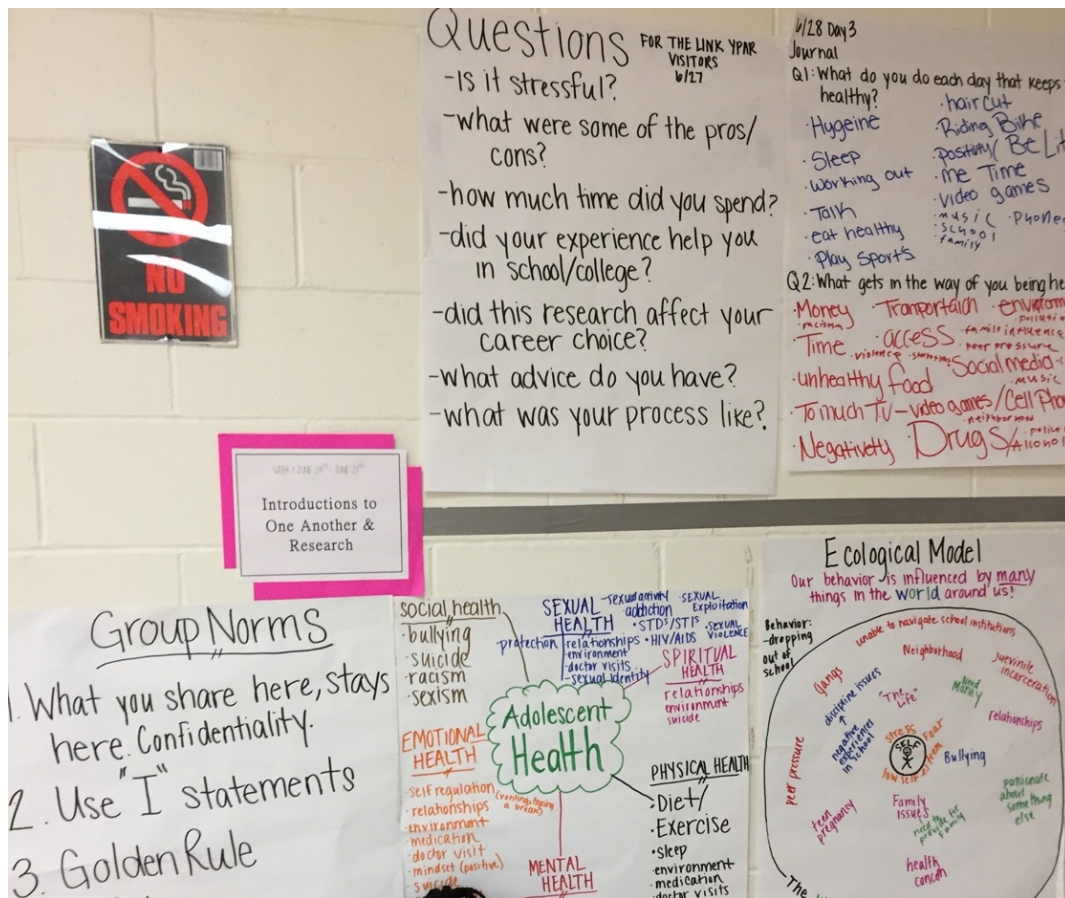 NO
SMOKING
Questions FOR THE LINK YPAR
VISITORS
6/27
-Is it stressful?
-what were some of the pros/
cons?
-how much time did you spend?
-did your experience help you
in school/college?
-did this research affect your
career choice?
-What advice do you have?
-what was your process like?
6/28 Day 3
Journal
Q1: What do you do each day that keeps
healthy?
·Hygeine
·Sleep
·working out
·Talk
·eat healthy
·Play Sports
·hair cut
·Riding Bike
·positivity/ Be Lit
·me Time
·video games
·music ·Phone
·school
·family
Q2: What gets in the way of you being he
·Money ·Tranportaion
·racism
·Time ·access ·family influence
·violence ·peer pressure
·unhealthy food ·Social media
·music
·To much TV-video games/Cell Pho
·Negatively ·Drugs/Alcohol
WEEK 1 JUNE 24TH - JUNE
Introductions to
One Another &
Research
Group Norms
1. What you share here, stays
here. Confidentiality.
2. Use "I" statements
3. Golden Rule
social health
·bullying
·suicide
·racism
·sexism
SEXUAL
HEALTH
protection
·sexual activity
addiction
·SEXUAL
Exploitation
·STDs/STIs
·HIV/AIDS
·SEXUAL
VIOLENCE
relationships
·environment
·doctor visits
·sexual identity
SPIRITUAL
HEALTH
relationships
environment
suicide
Adolescent
Health
EMOTIONAL
HEALTH
·self regulation
·relationships
·environment
·medication
·doctor visit
·mindset (positive)
·suicide
MENTAL
HEALTH
PHYSICAL HEALTH
·Diet/
·Exercise
·sleep
environment
·medication
·doctor visits
Ecological Model
Our behavior is influenced by many
things in the world around us!
Behavior:
-dropping
out of
school
unable to navigate school institutions
Neighborhood
Juvinile
incarceration
Gangs
discipline issues
"The
Life"
Need
Money
relationships
negative
experiences
in school
stress
Fear
SELF
low self esteem
Bullying
peer pressure
teen
pregnancy
Family
Issues
passionate
about
something
else
health
concern